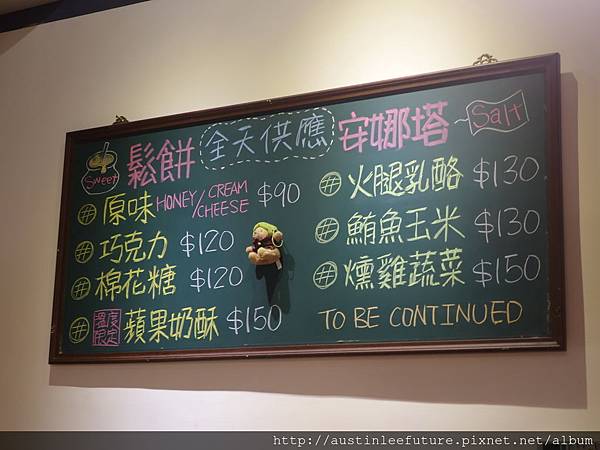 Sweet 鬆餅 全天供應 安娜塔 Salt
# 原味 HONEY/CREAM CHEESE $90
# 巧克力 $120
# 棉花糖 $120
# 溫度限定 蘋果奶酥 $150
# 火腿乳酪 $130
# 鮪魚玉米 $130
# 燻雞蔬菜 $150
TO BE CONTINUED
http://austinleefuture.pixnet.net/album